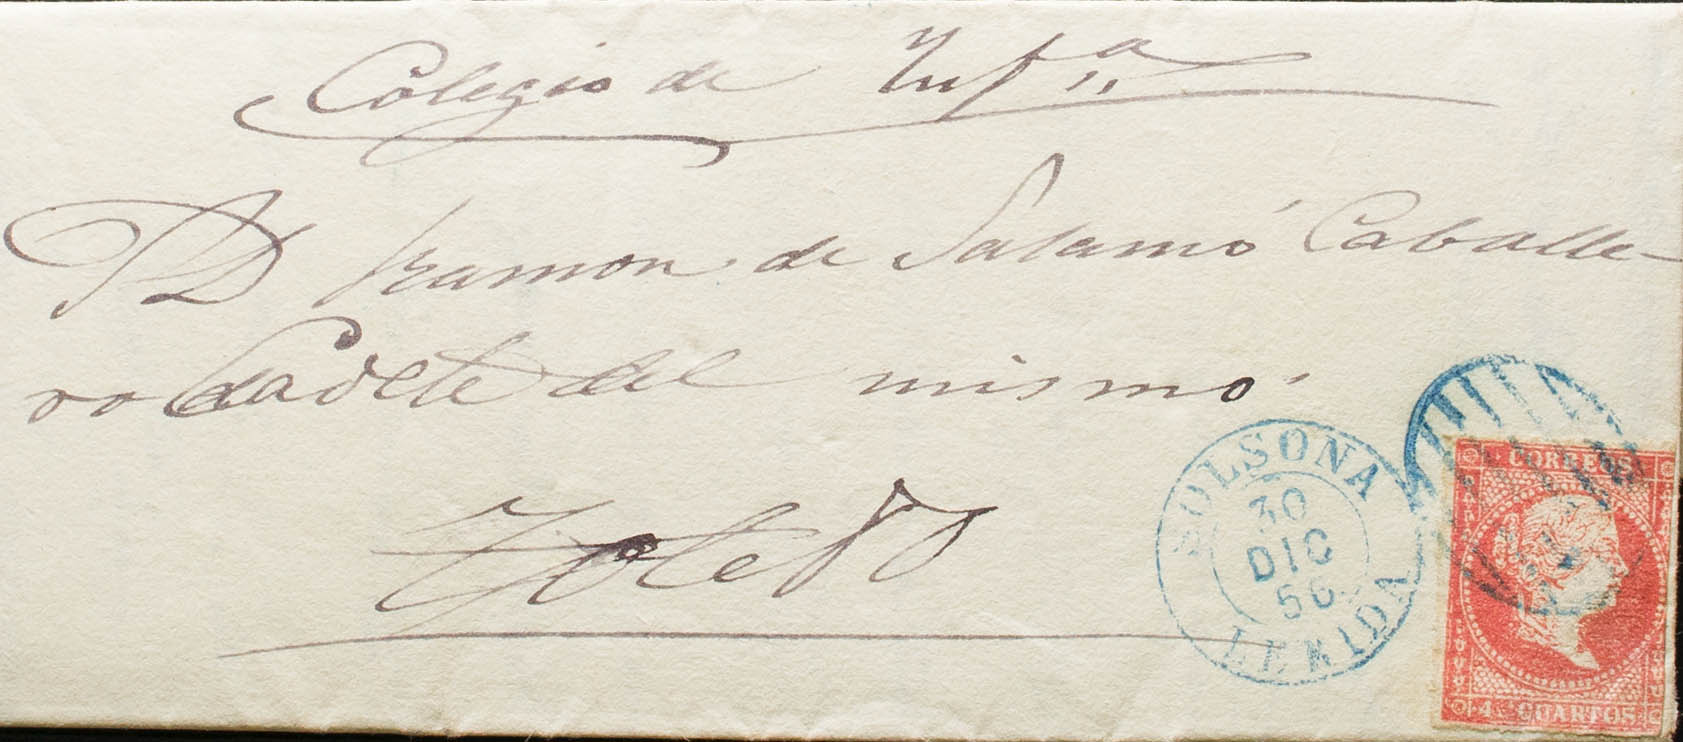 Colegio de Infª
D Ramon de Salamó Caballe-
ro Cadete del mismo
Toledo
SOLSONA
30
DIC
56
LERIDA
CORREOS
4 CUARTOS